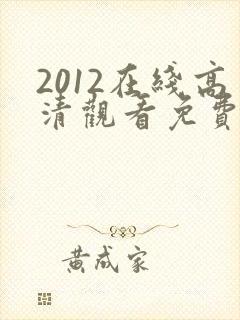 2012在綫高
清觀看免費
黄成家